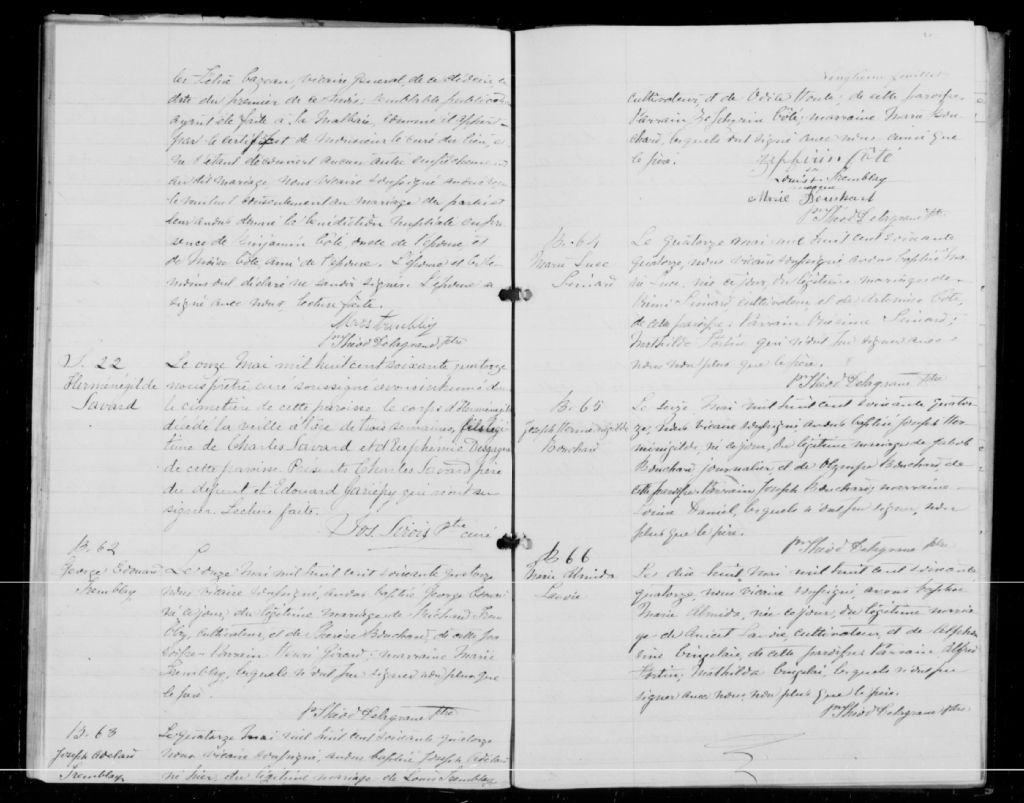 Félix Cazeau, vicaire général de ce diocèse, en
date du premier de ce mois; semblable publication
ayant été faite à la Malbaie, comme il appert
par le certificat de monsieur le curé du lieu, et
ne s'étant découvert aucun autre empêchement
au dit mariage, nous vicaire soussigné avons reçu
le mutuel consentement de mariage des parties et
leur avons donné la bénédiction nuptiale en pré-
sence de Benjamin Côté, oncle de l'épouse, et
de Moïse Côté, ami de l'époux. L'épouse et les té-
moins ont déclaré ne savoir signer. L'époux a
signé avec nous, lecture faite.
Tremblay
Théod Delagrave Ptre
S. 22
Herménégilde
Savard
Le onze Mai mil huit cent soixante quatorze
nous prêtre curé soussigné avons inhumé dans
le cimetière de cette paroisse le corps d'Herménégilde
décédé la veille à l'âge de trois semaines, fils légi-
time de Charles Savard et d'Euphémie Desgagné
de cette paroisse. Présents Charles Savard, père
du défunt et Edouard Gariépy qui n'ont su
signer. Lecture faite.
Jos. Sirois Ptre curé
B. 62
George Edouard
Tremblay
Le onze Mai mil huit cent soixante quatorze
nous vicaire soussigné, avons baptisé George Edouard
né ce jour, du légitime mariage de Trem-
blay, cultivateur, et de Bouchard, de cette pa-
roisse. Parrain Henri Girard; marraine Marie
Tremblay, lesquels n'ont pu signer non plus que
le père.
Théod Delagrave Ptre
B. 63
Joseph
Tremblay
Le quatorze Mai mil huit cent soixante quatorze
nous vicaire soussigné, avons baptisé Joseph
né hier, du légitime mariage de Louis Tremblay,
Vingtième feuillet
cultivateur, et de Odile, de cette paroisse.
Parrain Zéphirin Côté; marraine Marie Bou-
chard, lesquels ont signé avec nous ainsi que
le père.
Zépphirin Côté
Louis Tremblay
Marie Bouchard
Théod Delagrave Ptre
B. 64
Marie Luce
Simard
Le quatorze mai mil huit cent soixante
quatorze, nous vicaire soussigné avons baptisé Ma-
rie Luce, née ce jour, du légitime mariage de
Simard, cultivateur, et de Artémise Côté,
de cette paroisse. Parrain Onésime Simard;
Mathilde qui n'ont pu signer avec
nous non plus que le père.
Théod Delagrave Ptre
B. 65
Joseph Herménégilde
Bouchard
Le seize Mai mil huit cent soixante quator-
ze, nous vicaire soussigné avons baptisé Joseph Her-
ménégilde, né ce jour, du légitime mariage de
Bouchard journalier, et de Olympe Bouchard, de
cette paroisse. Parrain Joseph Bouchard; marraine
Louise Daniel, lesquels n'ont pu signer, non
plus que le père.
Théod Delagrave Ptre
B. 66
Marie Almida
Lavoie
Le dix huit Mai mil huit cent soixante
quatorze, nous vicaire soussigné, avons baptisé
Marie Almida, née ce jour, du légitime maria-
ge de Lavoie, cultivateur, et de Alphon-
sine, de cette paroisse. Parrain Alfred
Fortin; Mathilda, lesquels n'ont pu
signer avec nous non plus que le père.
Théod Delagrave Ptre